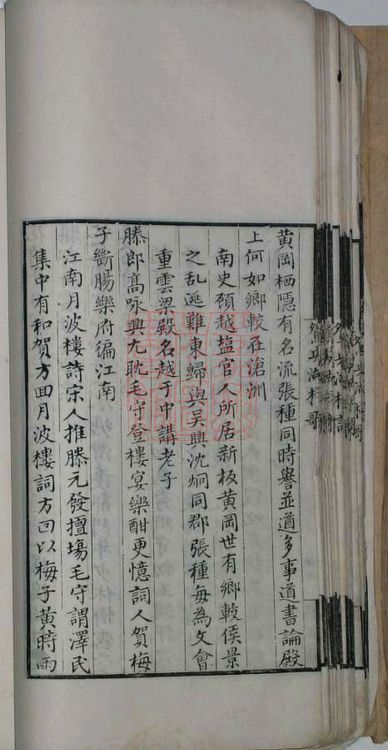 黄岡栖隱有名流張種同時譽並遒多事道書論殿
上何如鄉較在滄洲
南史顧越塩官人所居新板黄岡世有鄉較侯景
之乱逃難東歸與吴興沈炯同郡張種每為文會
重雲梁殿名越于中講老子
滕郎髙咏興尢耽毛守登樓宴樂酣更憶詞人賀梅
子斷腸樂府徧江南
江南月波樓詩宋人推滕元發擅塲毛守謂澤民
集中有和賀方囬月波樓詞方回以梅子黄時雨